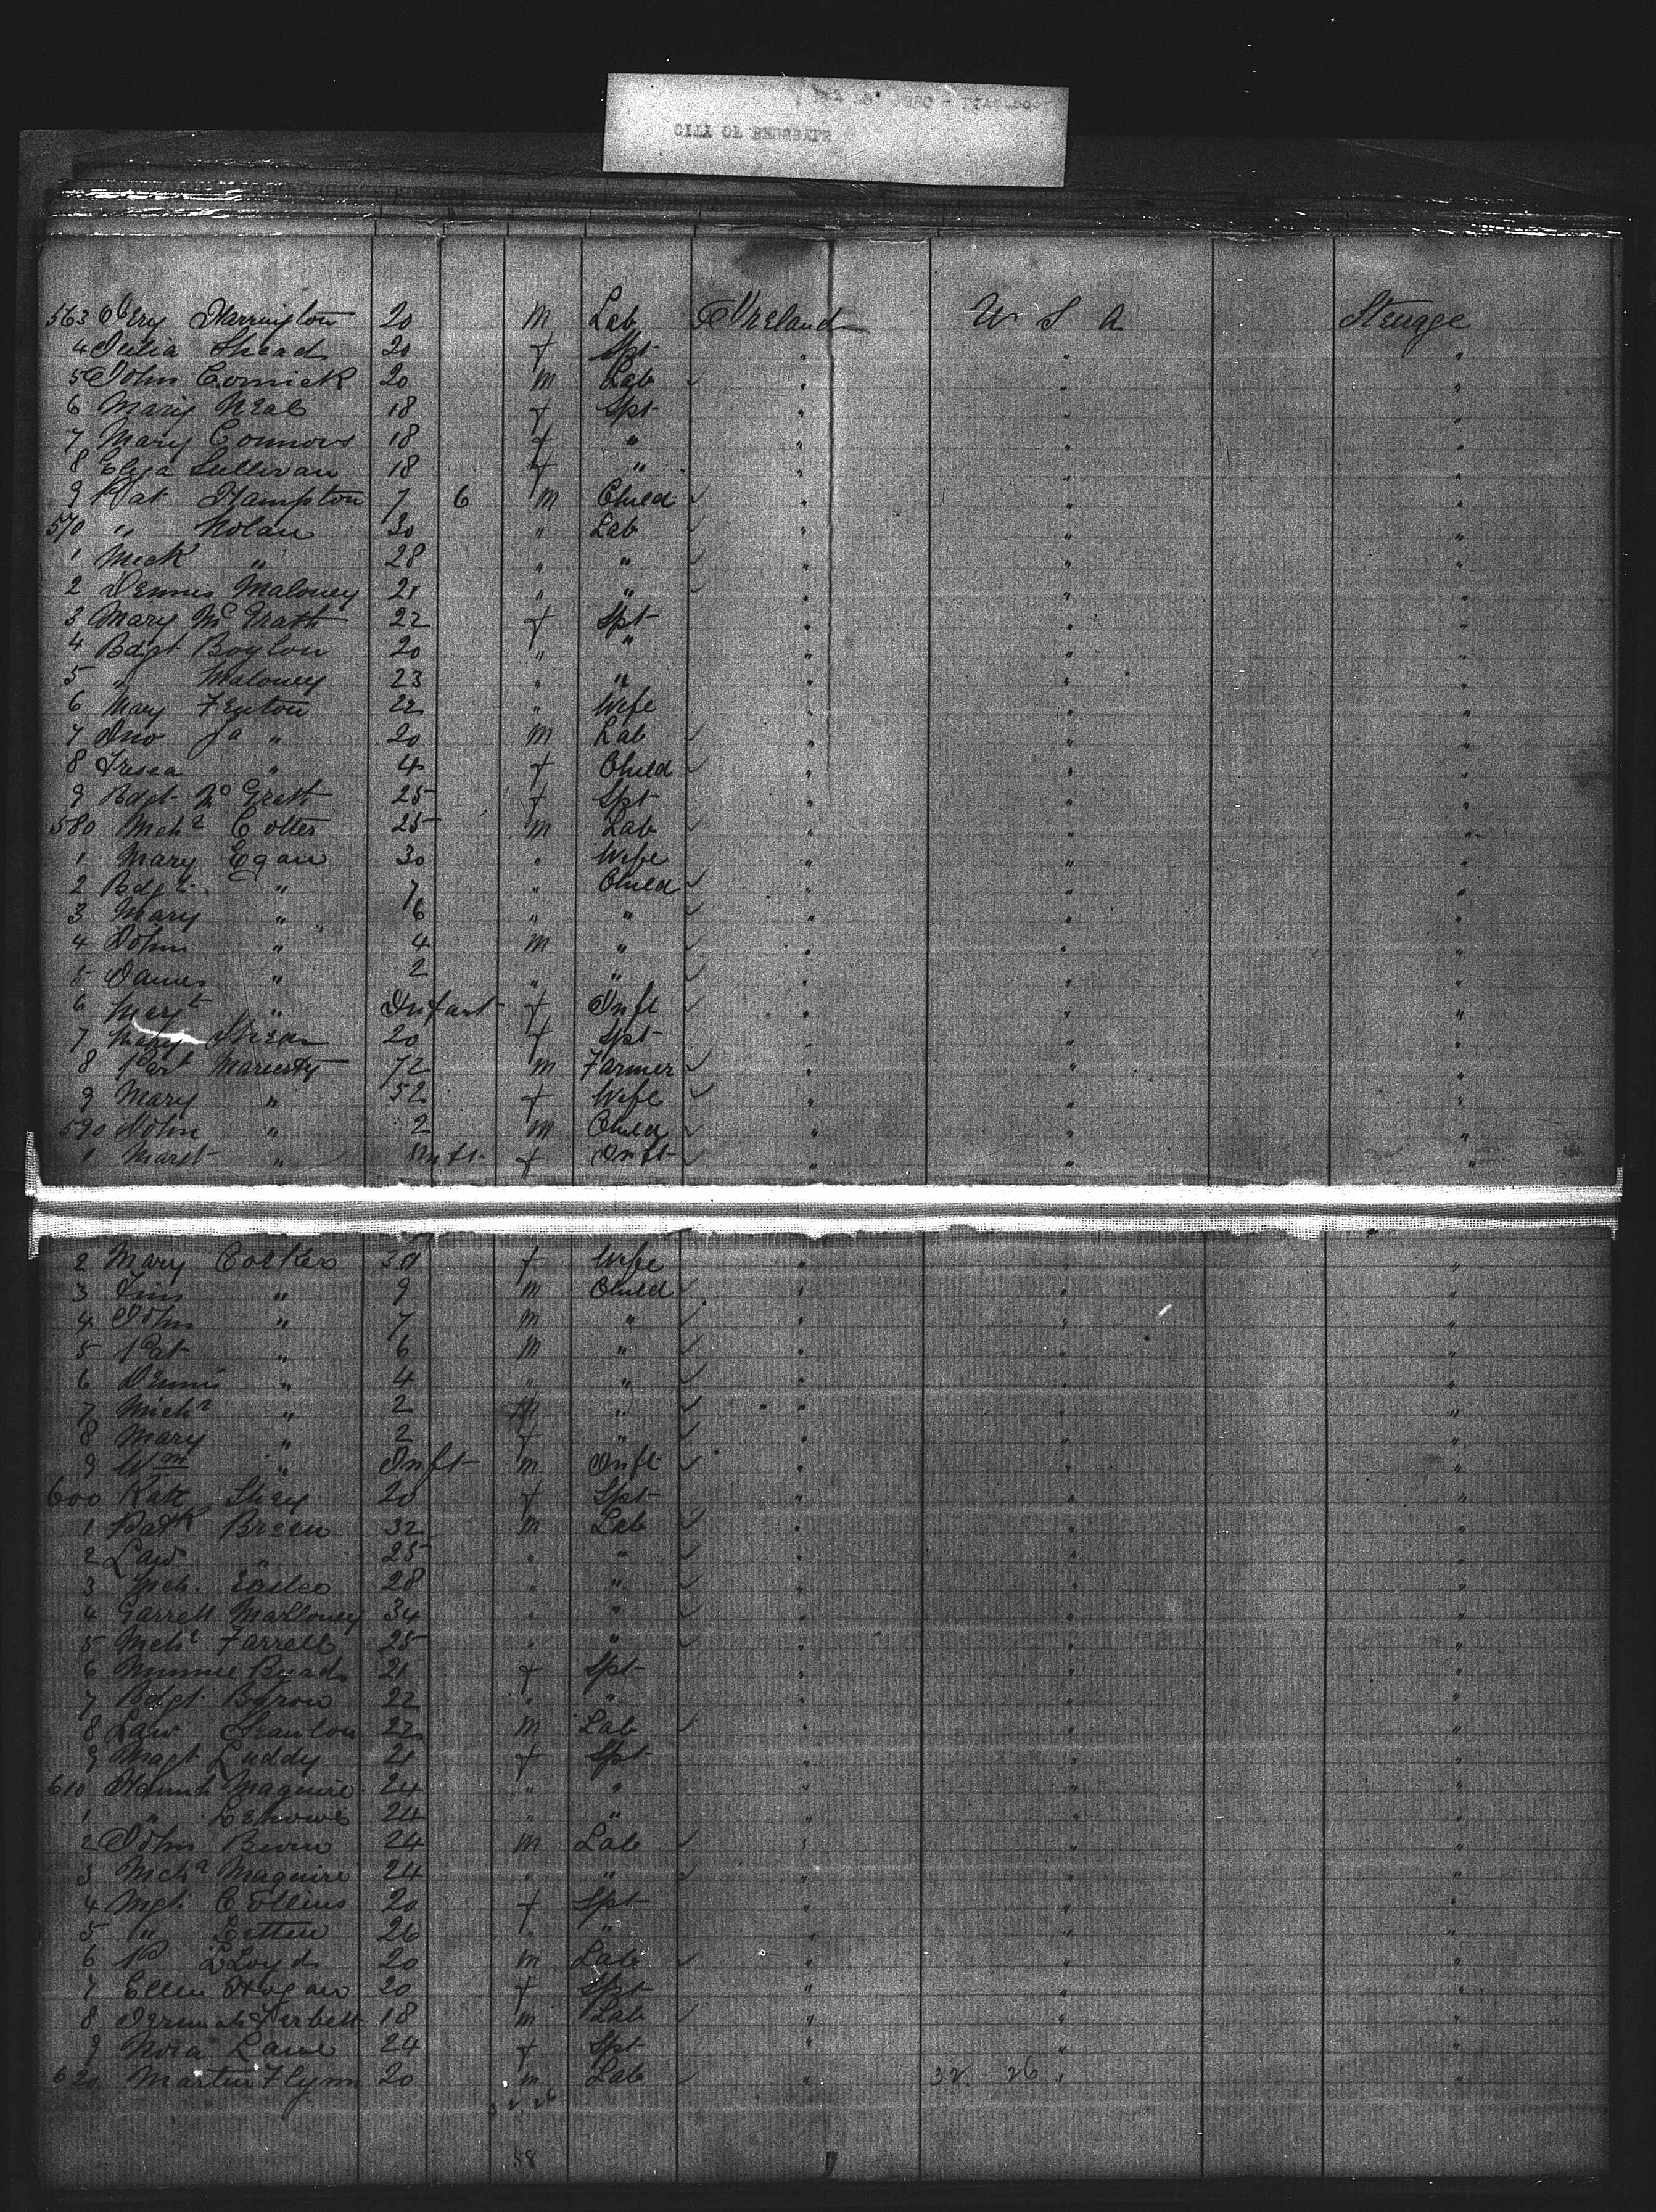 CITY OF
563 Jery Harrington 20 M Lab Ireland U S A Steerage
4 Julia Shead 20 f Spt " " "
5 John Cornick 20 M Lab " " "
6 Mary Neal 18 f Spt " " "
7 Mary Connors 18 f " " " "
8 Eliza Sullivan 18 f " " " "
9 Pat Hampton 7 6 M Child " " "
570 " Nolan 30 " Lab " " "
1 Mick " 28 " " " " "
2 Dennis Maloney 21 " " " " "
3 Mary Mc Grath 22 f Spt " " "
4 Bdgt Boylon 20 " " " " "
5 " Maloney 23 " " " " "
6 Mary Fenton 22 " Wife " " "
7 Jno Ja " 20 M Lab " " "
8 Tresea " 4 f Child " " "
9 Bdgt Mc Grath 25 f Spt " " "
580 Mchl Cotter 25 M Lab " " "
1 Mary Egan 30 " Wife " " "
2 Bdgt " 7 " Child " " "
3 Mary " 6 " " " " "
4 John " 4 M " " " "
5 James " 2 " " " " "
6 Margt " Infant f Inft " " "
7 Mary 20 f Spt " " "
8 Pat Mariarty 72 M Farmer " " "
9 Mary " 52 f Wife " " "
590 John " 2 M Child " " "
1 Margt " Inft f Inft " " "
2 Mary Corker 30 f Wife " " "
3 Tim " 9 M Child " " "
4 John " 7 M " " " "
5 Pat " 6 M " " " "
6 Dennis " 4 " " " " "
7 Michl " 2 M " " " "
8 Mary " 2 f " " " "
9 Wm " Inft m Inft " " "
600 Kate 20 f Spt " " "
1 Patk Breen 32 m Lab " " "
2 Law " 25 " " " " "
3 Mch. 28 " " " " "
4 Garrett Malloney 34 " " " " "
5 Mchl Farrell 25 " " " " "
6 Minnie 21 f Spt " " "
7 Bdgt Byrow 22 " " " " "
8 Law Scanlon 22 M Lab " " "
9 Magt Luddy 21 f Spt " " "
610 Hannah Maguire 24 " " " " "
1 " 24 " " " " "
2 John 24 M Lab " " "
3 Mchl Maguire 24 " " " " "
4 Mgt Collins 20 f Spt " " "
5 " 26 " " " " "
6 P LLoyds 20 m Lab " " "
7 Ellen Hogan 20 f Spt " " "
8 Jermiah Herbett 18 m Lab " " "
9 Nora Lane 24 f Spt " " "
620 Martin Flynn 20 m Lab " 32 26 " "
32 26
58